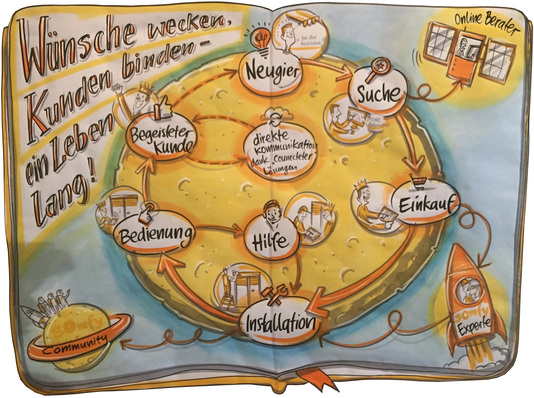 Wünsche wecken,
Kunden binden –
ein Leben
lang!
Online Berater
Neugier
Suche
Begeisterter
Kunde
direkte
Kommunikation
dank connecteter
Lösungen
Einkauf
Bedienung
Hilfe
Installation
somfy
Experte
somfy
Community